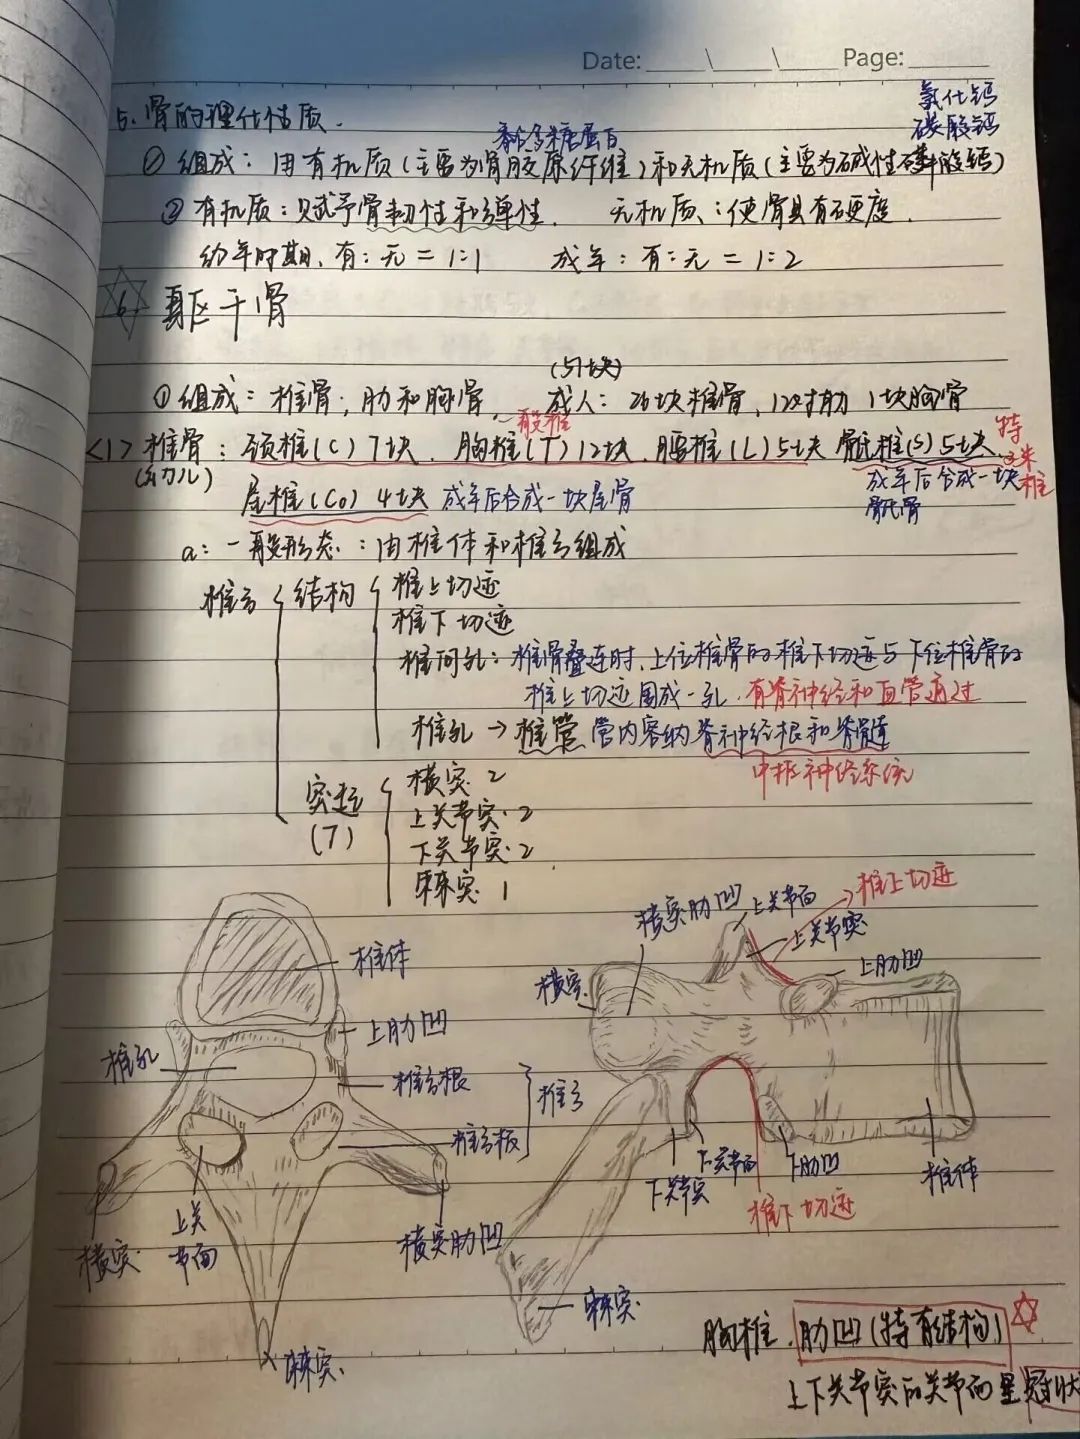 Date: ____\____\____ Page: ____
5. 骨的理化性质.
氯化钙
碳酸钙
黏多糖蛋白
① 组成：由有机质(主要为骨胶原纤维)和无机质(主要为碱性磷酸钙)
② 有机质：赋予骨韧性和弹性. 无机质：使骨具有硬度.
幼年时期、有：无 = 1:1 成年：有：无 = 1:2
6. 躯干骨
(51块)
① 组成：椎骨，肋和胸骨， 成人：26块椎骨、12对肋 1块胸骨
一般椎
特殊椎
<1> 椎骨：颈椎(C) 7块、胸椎(T) 12块、腰椎(L) 5块 骶椎(S) 5块、
(幼儿) 成年后合成一块骶骨
尾椎(Co) 4块 成年后合成一块尾骨
a：一般形态：由椎体和椎弓组成
椎弓 结构 椎上切迹
椎下切迹
椎间孔：椎骨叠连时，上位椎骨的椎下切迹与下位椎骨的
椎上切迹围成一孔. 有脊神经和血管通过
椎孔 → 椎管 管内容纳脊神经根和脊髓
中枢神经系统
突起 (7) 横突 2
上关节突 2
下关节突 2
棘突 1
椎体
上肋凹
椎孔
椎弓根
椎弓板
椎弓
横突
上关节面
横突肋凹
棘突
横突肋凹
上关节面
椎上切迹
上关节突
上肋凹
横突
下关节突
下关节面
下肋凹
椎体
椎下切迹
棘突
胸椎. 肋凹(特有结构)
上下关节突的关节面呈冠状